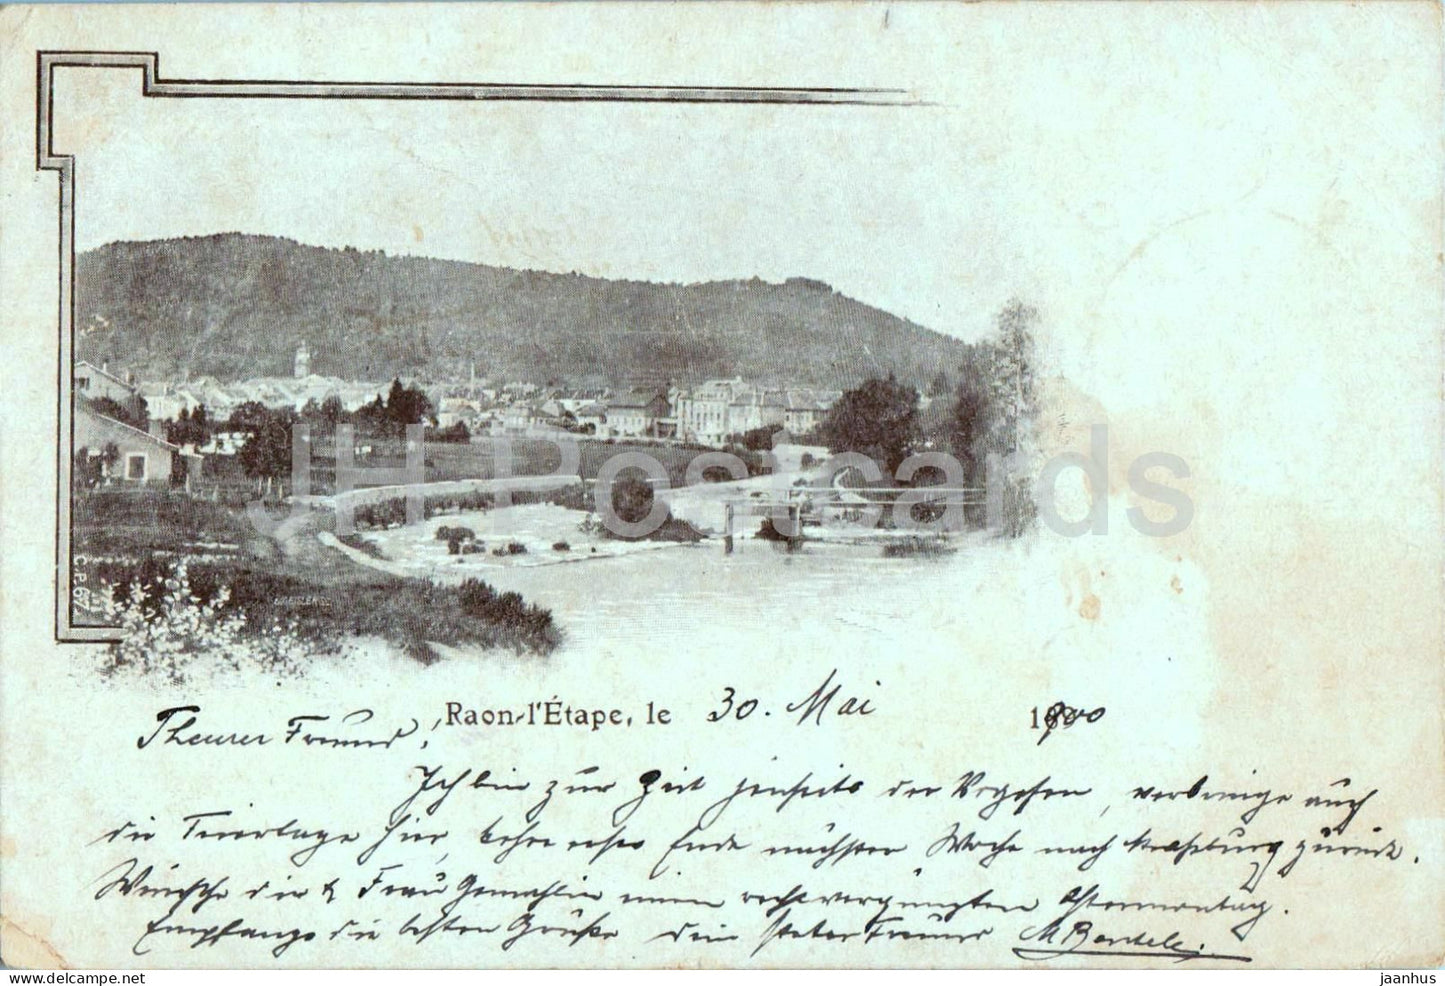 C.P. 67
JH Postcards
Raon-l'Étape, le 30. Mai 1900
Theurer Freund!
Ich bin zur Zeit jenseits der Vogesen, verbringe auch
die Feiertage hier, kehre erst Ende nächster Woche nach Straßburg zurück.
Wünsche dir & Frau Gemahlin einen recht vergnügten
Empfange die besten Grüße dein Freund M Bartele.
jaanhus
hippostcard.com